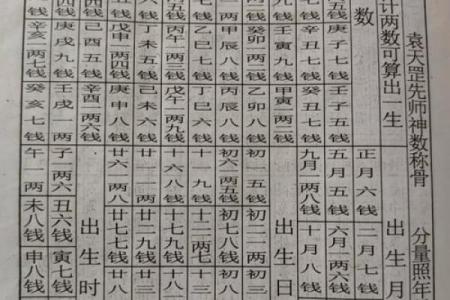 袁天罡先师神数称骨
分量照年
计两数可算出一生
数
庚子七钱
辛丑七钱
壬寅九钱
癸卯两二钱
甲辰八钱
乙巳七钱
丙午两三钱
丁未五钱
戊申两四钱
己酉五钱
庚戌九钱
辛亥两七钱
壬子五钱
癸丑七钱
甲寅两二
乙卯八钱
丙辰八钱
丁巳六钱
戊午两九钱
己未六钱
庚申八钱
辛酉两六钱
壬戌一
癸亥七钱
出生月
正月六钱
二月七钱
五月五钱
六月一两六钱
九月两八钱
十月八钱
出生日
初一五钱
初二一两
初三
初六两五钱
初七八钱
初八
十一九钱
十二两七
十六八钱
十七九钱
十八
廿一一两
廿二九钱
廿六两八
廿七七钱
廿八
出生时
子两六
丑六钱
寅七钱
午一两
未八钱
申八钱